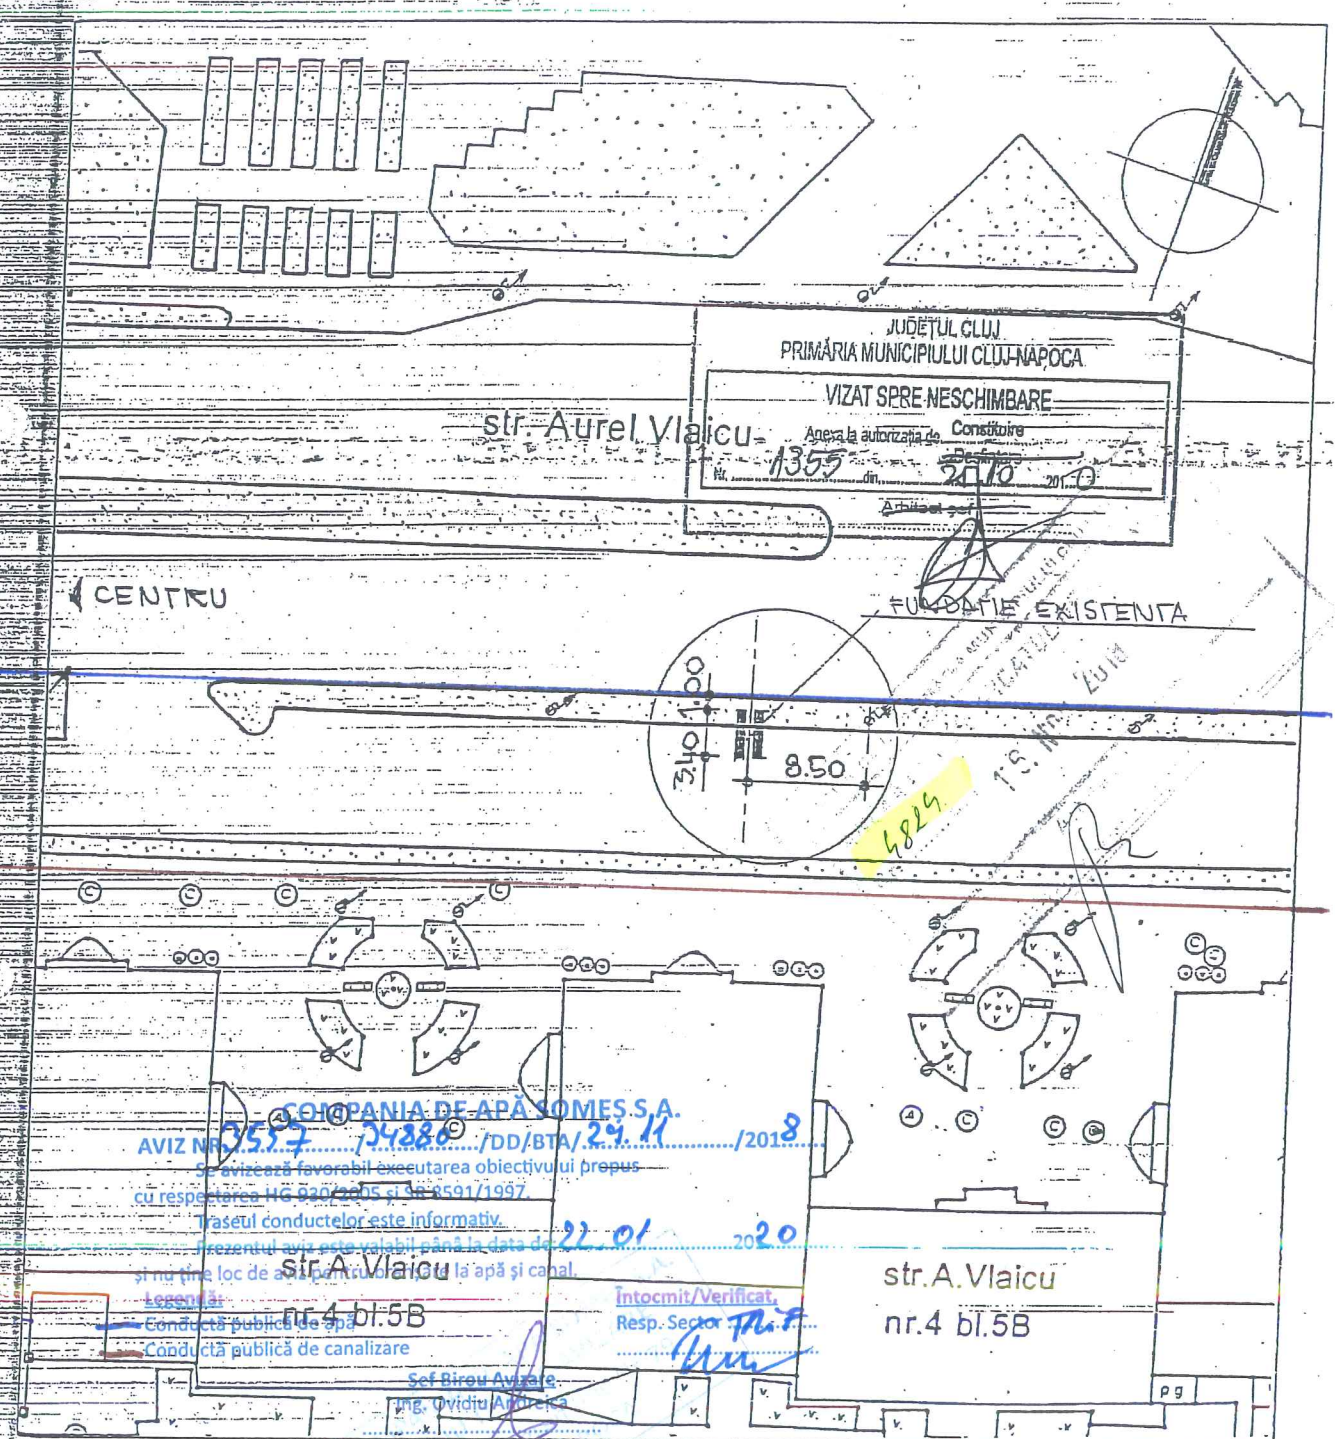 JUDEȚUL CLUJ
PRIMĂRIA MUNICIPIULUI CLUJ-NAPOCA
VIZAT SPRE NESCHIMBARE
Anexa la autorizația de Construire
Desființare
Nr. 1355 din 21.10 201
Arhitect șef
str. Aurel Vlaicu
CENTRU
FUNDATIE EXISTENTA
1.00
3.40
8.50
4824
C C C C
C
A C
C
C
COMPANIA DE APĂ SOMEȘ S.A.
AVIZ NR 3557 / 34880 /DD/BTA/ 29.11 /2018
Se avizează favorabil executarea obiectivului propus
cu respectarea HG 930/2005 și SR 8591/1997.
Traseul conductelor este informativ.
Prezentul aviz este valabil până la data de 22.01 2020
și nu ține loc de aviz pentru branșare la apă și canal.
Legendă:
Conductă publică de apă
Conductă publică de canalizare
Întocmit/Verificat,
Resp. Sector
Șef Birou Avizare
Ing. Ovidiu Andreica
str.A.Vlaicu
nr.4 bl.5B
str.A.Vlaicu
nr.4 bl.5B
pg